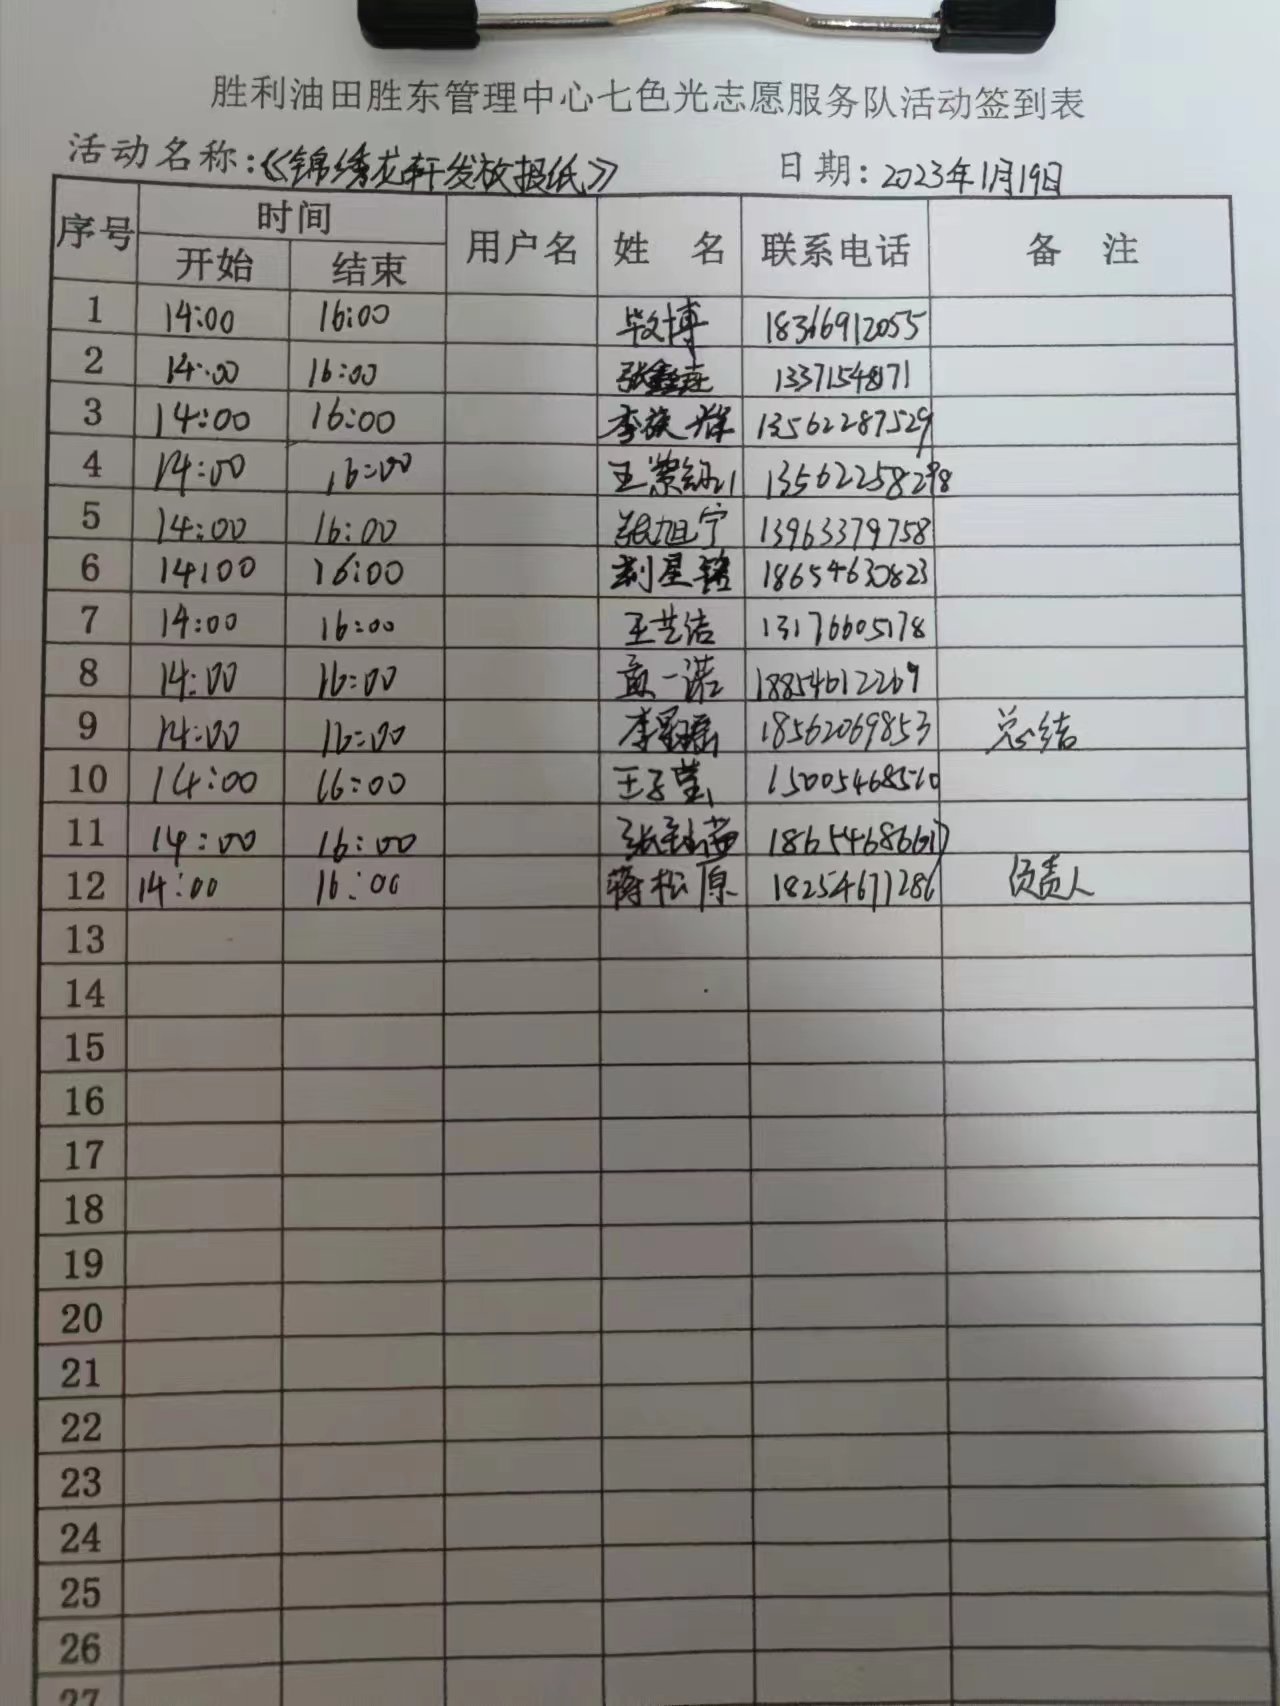 胜利油田胜东管理中心七色光志愿服务队活动签到表
活动名称:《锦绣龙轩发放报纸》 日期: 2023年1月19日
序号 时间 用户名 姓 名 联系电话 备 注
开始 结束
1 14:00 16:00 毕文博 18366912055
2 14:00 16:00 张鑫 13371154871
3 14:00 16:00 李 辉 13562287529
4 14:00 16:00 王 13562258298
5 14:00 16:00 张旭宁 13963379758
6 14:00 16:00 刘星铭 18654630823
7 14:00 16:00 王艺洁 13176605178
8 14:00 16:00 一诺 18854612269
9 14:00 16:00 李 瑶 18562069853 总结
10 14:00 16:00 王子莹 15005468510
11 14:00 16:00 张 1865468661
12 14:00 16:00 蒋松原 18254671286 负责人
13
14
15
16
17
18
19
20
21
22
23
24
25
26
27